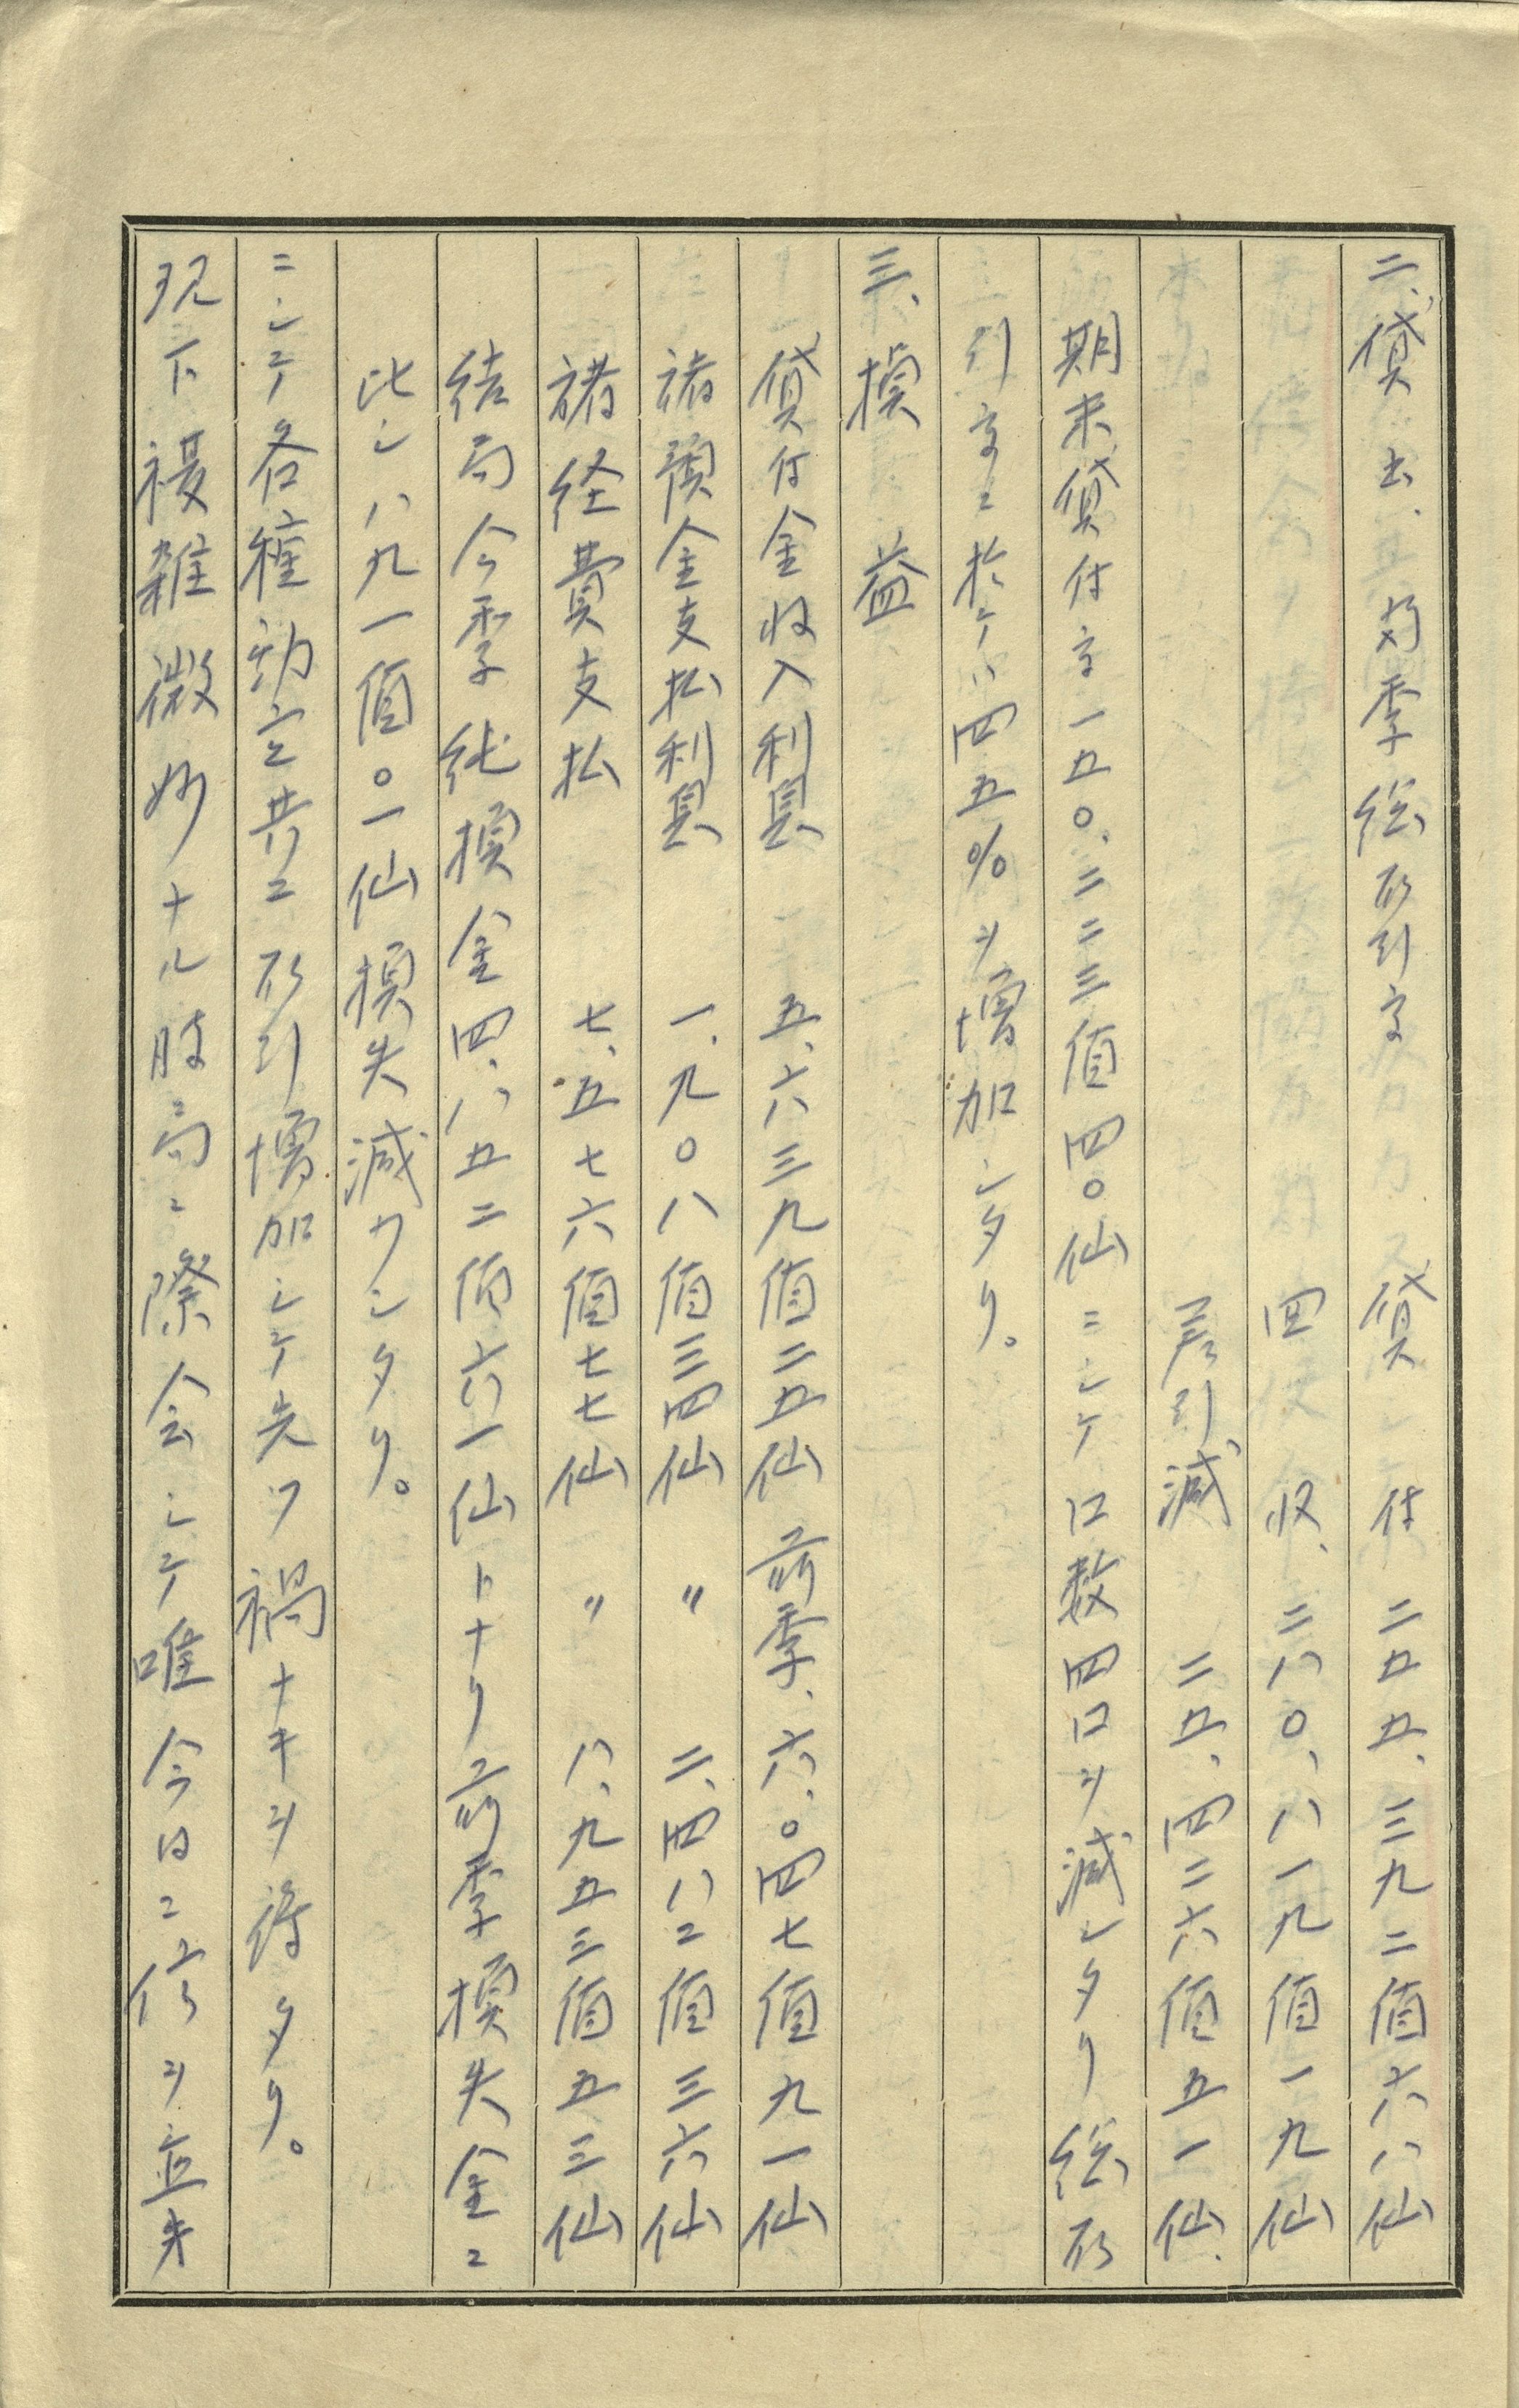 二、貸出、当季総取引高 貸付 二五五、三九二值六八仙
回収、二八〇、八一九值一九仙
差引減 二五、四二六值五一仙、
期末貸付高一五〇、二二三值四〇仙ニシテ口数四口ヲ減シタリ総取
引高ニ於テハ四五%ヲ増加シタリ。
三、損益
貸付金収入利息 五、六三九值二五仙 前季、六、〇四七值九一仙
諸預金支払利息 一、九〇八值三四仙 〃 二、四八二值三六仙
諸経費支払 七、五七六值七七仙 〃 八、九五三值五三仙
結局今季純損金四、八五二值六一仙トナリ前季損失金ニ
比シ八九一值〇一仙損失減少シタリ。
ニシテ各種勘定共ニ取引増加シテ先ツ禍ナキヲ得タリ。
現下複雑微妙ナル時局ニ際会シテ唯今日ニ修ヲ並失